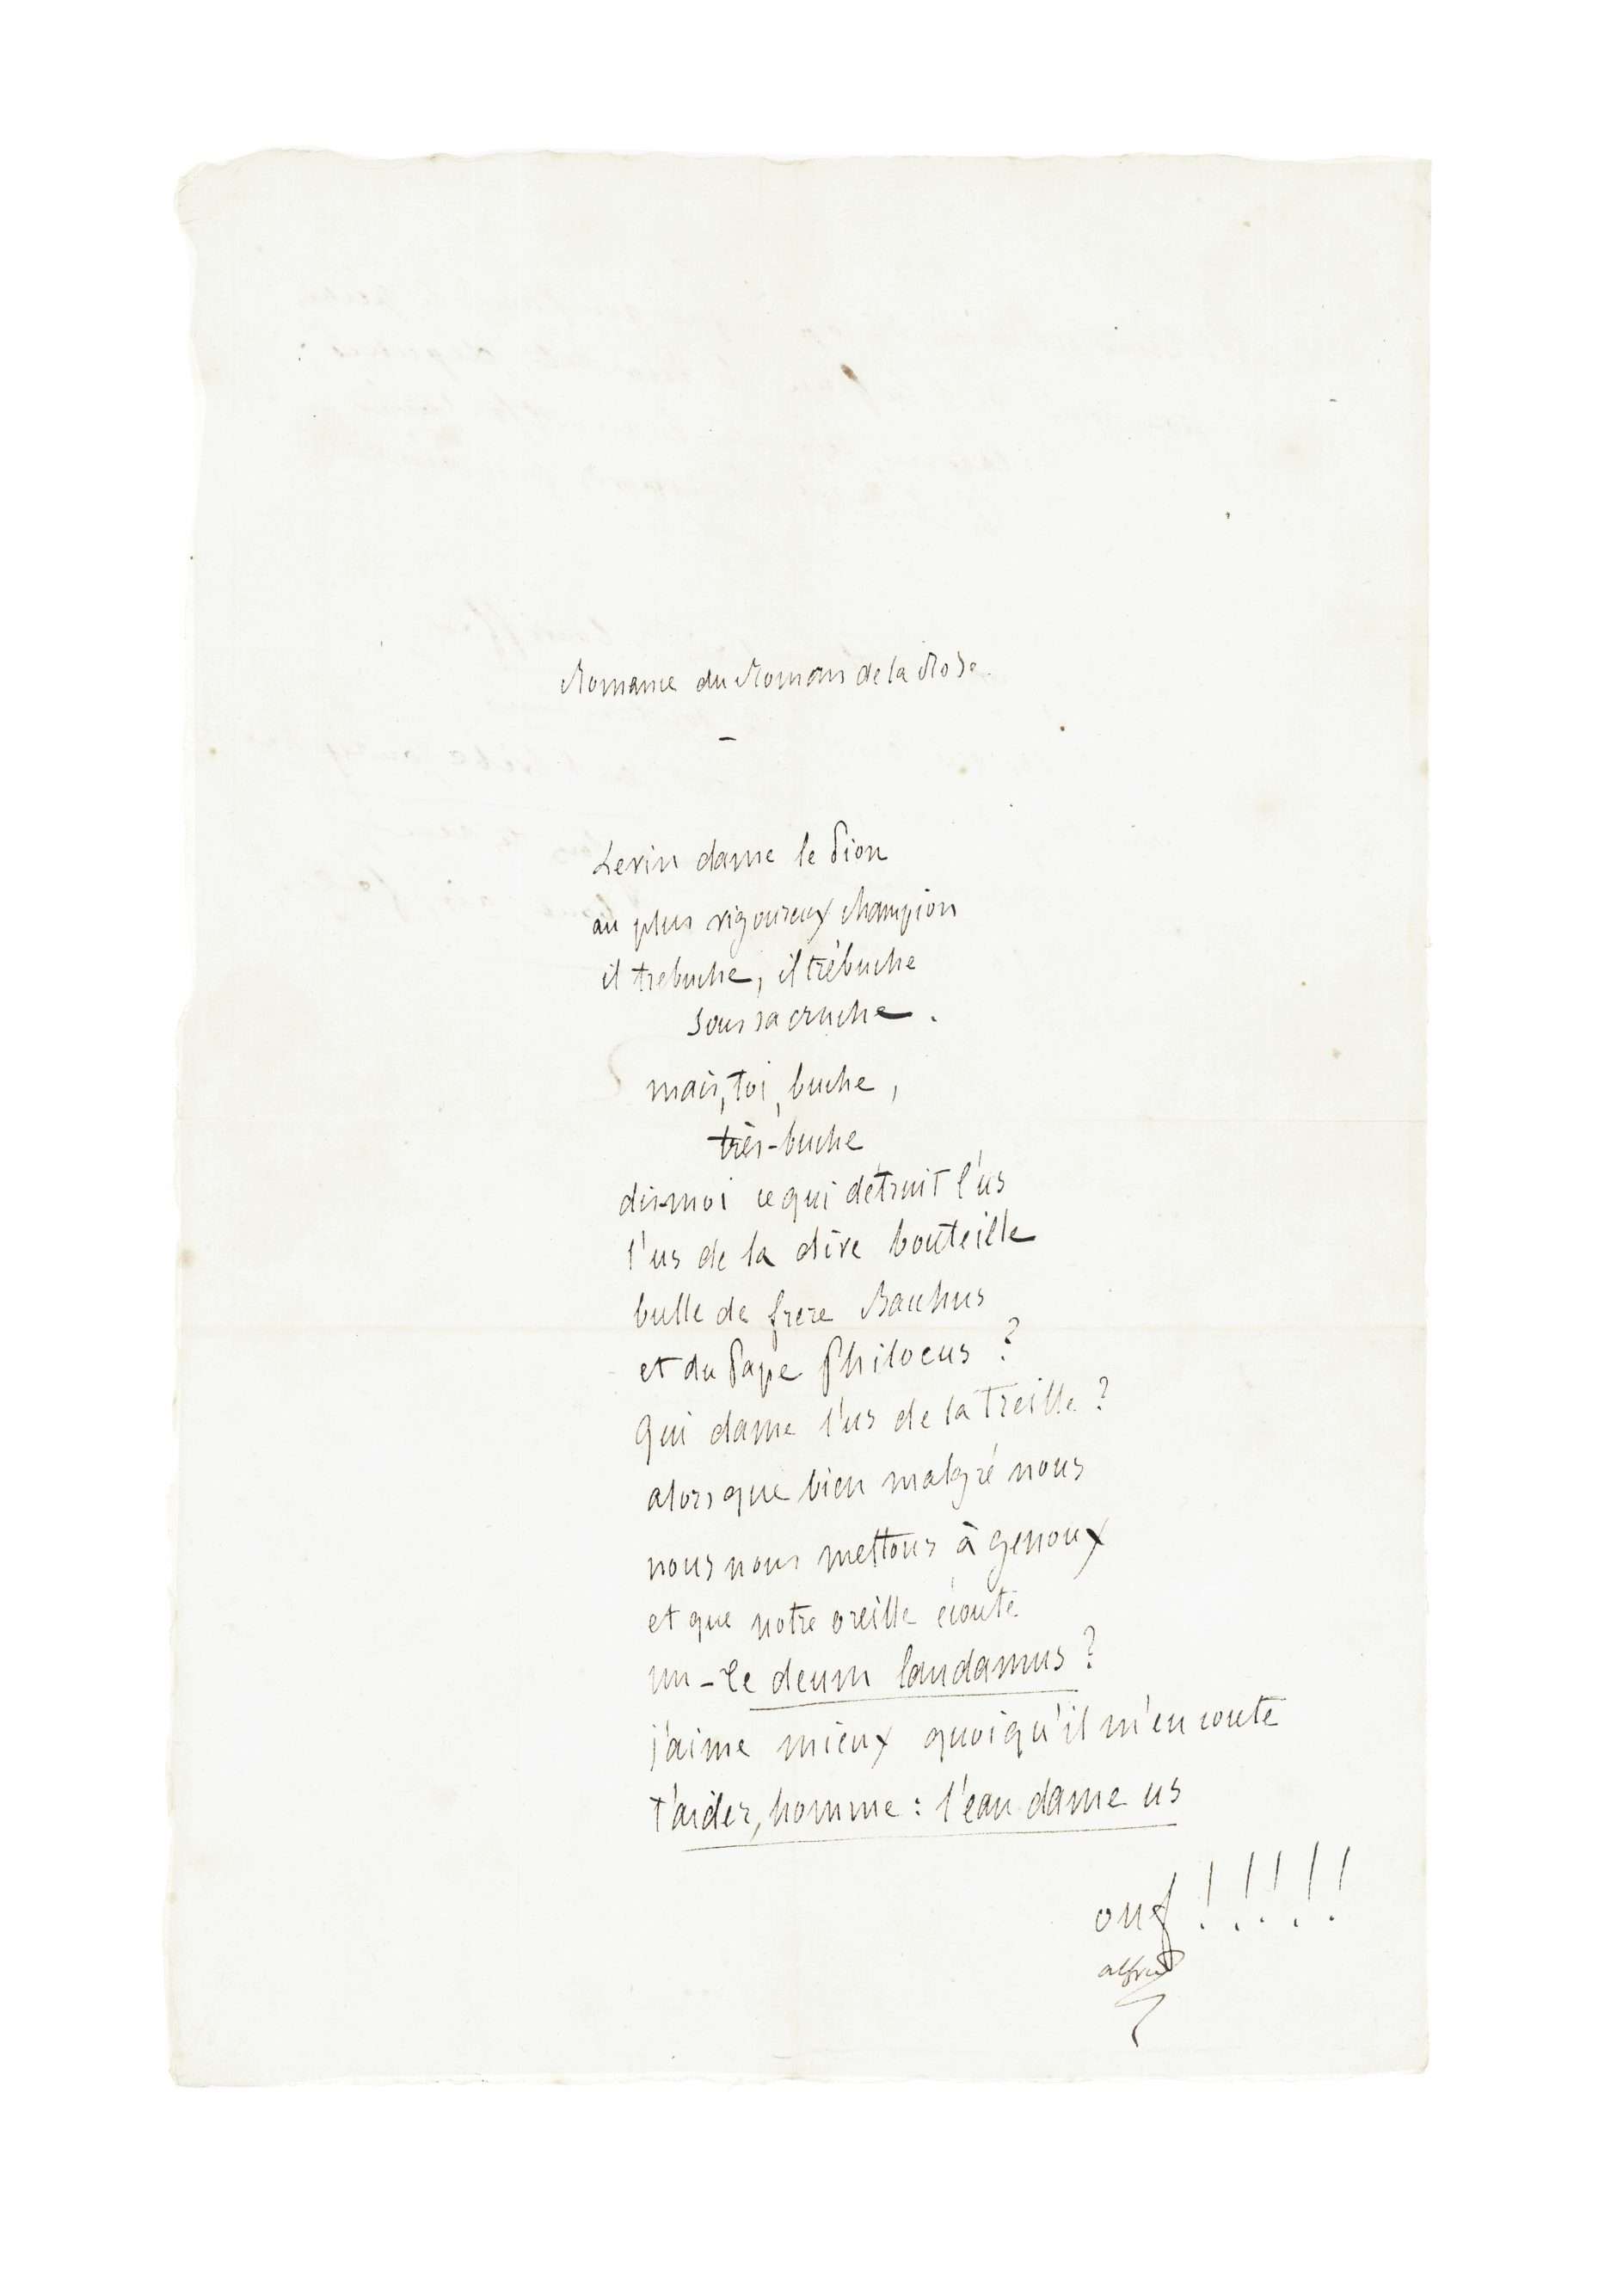 Romance du Roman de la Rose.
Le vin dame le Pion
au plus vigoureux champion
il trebuche, il trébuche
sous sa cruche.
mais, toi, buche,
très-buche
dis-moi ce qui détruit l'us
l'us de la dive bouteille
bulle de frere Bacchus
et du Pape Philocus ?
Qui dame l'us de la Treille ?
alors que bien malgré nous
nous nous mettons à genoux
et que notre oreille écoute
un - Te deum laudamus ?
j'aime mieux quoiqu'il m'en coute
t'aider, homme : l'eau dame us
ouf !!!!!
alfred